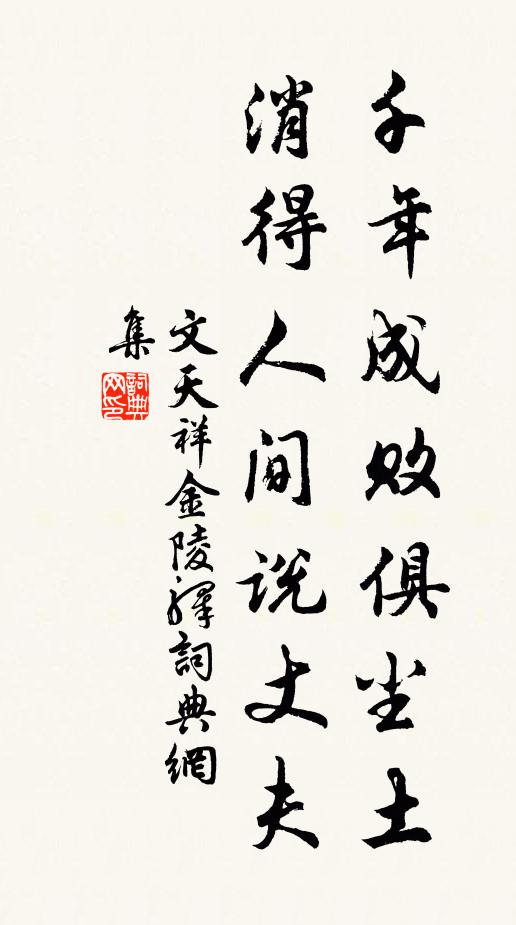 千年成败俱尘土
消得人间说丈夫
文天祥金陵驿詞典網
集
詞典网印